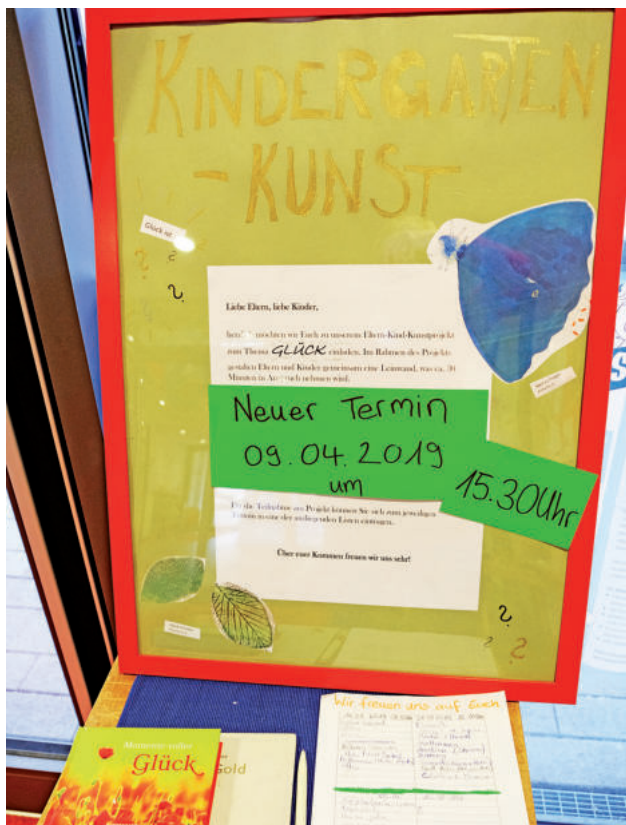 KINDERGARTEN
-KUNST
Glück ist
Liebe Eltern, liebe Kinder,
möchten wir Euch zu unserem Eltern-Kind-Kunstprojekt
zum Thema GLÜCK einladen. Im Rahmen des Projekts
gestalten Eltern und Kinder gemeinsam eine Leinwand, was ca. 30
Minuten in Anspruch nehmen wird.
Neuer Termin
09.04.2019
um
15.30 Uhr
Für die Teilnahme am Projekt können Sie sich zum jeweiligen
Termin in eine der ausliegenden Listen eintragen.
Über euer Kommen freuen wir uns sehr!
Wir freuen uns auf Euch
Momente voller
Glück
Gold